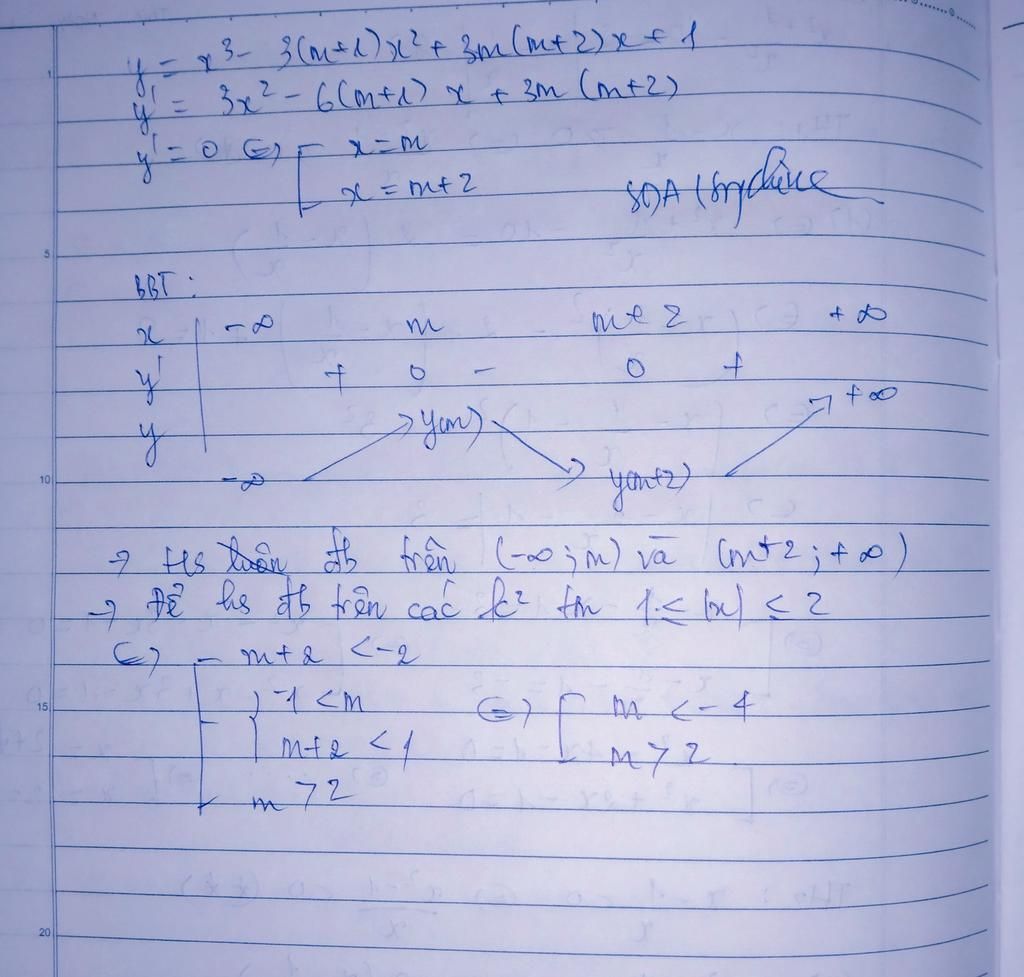 y = x³ - 3(m+1)x² + 3m(m+2)x + 1
y' = 3x² - 6(m+1)x + 3m(m+2)
y' = 0 ⇔ [ x = m
x = m+2
BBT :
x | -∞ m m+2 +∞
y' | + 0 - 0 +
y | -∞ ↗ y(m) ↘ y(m+2) ↗ +∞
→ Hs đb trên (-∞; m) và (m+2; +∞)
→ Để hs đb trên các k² tm 1 ≤ |x| ≤ 2
⇔ [ m+2 < -2
{ -1 < m
m+2 < 1
m > 2
⇔ [ m < -4
m > 2
1
5
10
15
20